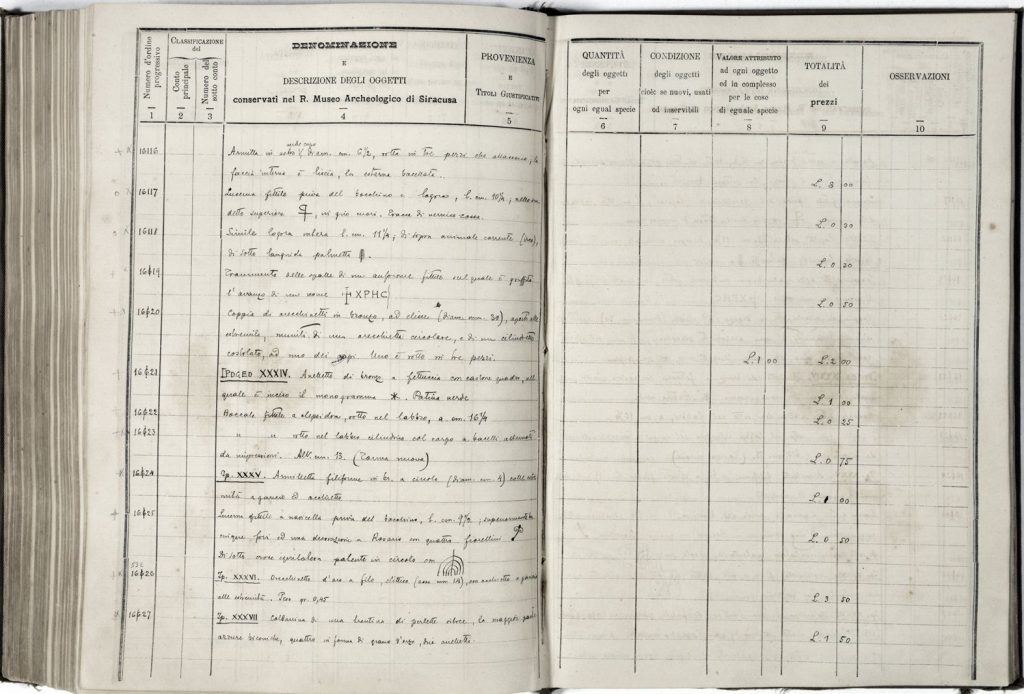 Numero d'ordine progressivo
CLASSIFICAZIONE
del
Conto principale
Numero del sotto conto
DENOMINAZIONE
E
DESCRIZIONE DEGLI OGGETTI
conservati nel R. Museo Archeologico di Siracusa
PROVENIENZA
E
TITOLI GIUSTIFICATIVI
1
2
3
4
5
QUANTITÀ
degli oggetti
per
ogni egual specie
6
CONDIZIONE
degli oggetti
cioè se nuovi, usati
od inservibili
7
VALORE ATTRIBUITO
ad ogni oggetto
od in complesso
per le cose
di eguale specie
8
TOTALITÀ
dei
prezzi
9
OSSERVAZIONI
10
16116 Armilla in 6 1/2, rotta in tre pezzi che attaccano, la
faccia interna è liscia, la esterna baccellata.
L. 3 00
16117 Lucerna fittile priva del beccuccio e logora, l. cm. 10 1/2;
detto superiore in giro Tracce di vernice rossa.
L. 0 30
16118 Simile logora l. cm. 11 1/2; di sopra animale corrente
di sotto palmetta
L. 0 20
16119 Frammento delle spalle di un anforone fittile sul quale è graffito
l'avanzo di un nome ΧΡΗC
L. 0 50
16120 Coppia di orecchinetti in bronzo, ad elisse (diam. mm. 30), aperti alle
estremità, muniti di una orecchietta circolare, e di un cilindretto
cordolato, ad uno dei capi. Uno è rotto in tre pezzi.
L. 1 00 L. 2 00
16121 IPOGEO XXXIV. Anelletto di bronzo a fettuccia con castone quadro, sul
quale è inciso il monogramma. Patina verde
L. 1 00
16122 Boccale fittile a clepsidra, rotto nel labbro, a. cm. 16 1/2
L. 0 25
16123 " " rotto nel labbro cilindrico col corpo a
da impressioni. Alt. cm. 13. (Forma nuova)
L. 0 75
16124 Ip. XXXV. Armilletta filiforme in br. a circolo (diam. cm. 4) colle estre
mità a gancio ed occhietto
L. 1 00
16125 Lucerna fittile a navicella priva del beccuccio, l. cm. 9 1/2; superiormente ha
cinque fori ed una decorazione a Rosario con quattro fiorellini
Di sotto croce equilatera in circolo con
L. 0 50
16126 Ip. XXXVI. Orecchinetto d'oro a filo, elittico (asse mm. 14), con occhietto e gancio
alle estremità. Peso gr. 0,45
L. 3 50
16127 Ip. XXXVII Collanina di una trentina di perlette vitree, la maggior parte
azzurre biconiche, quattro in forma di grano d'orzo, due anelletti.
L. 1 50